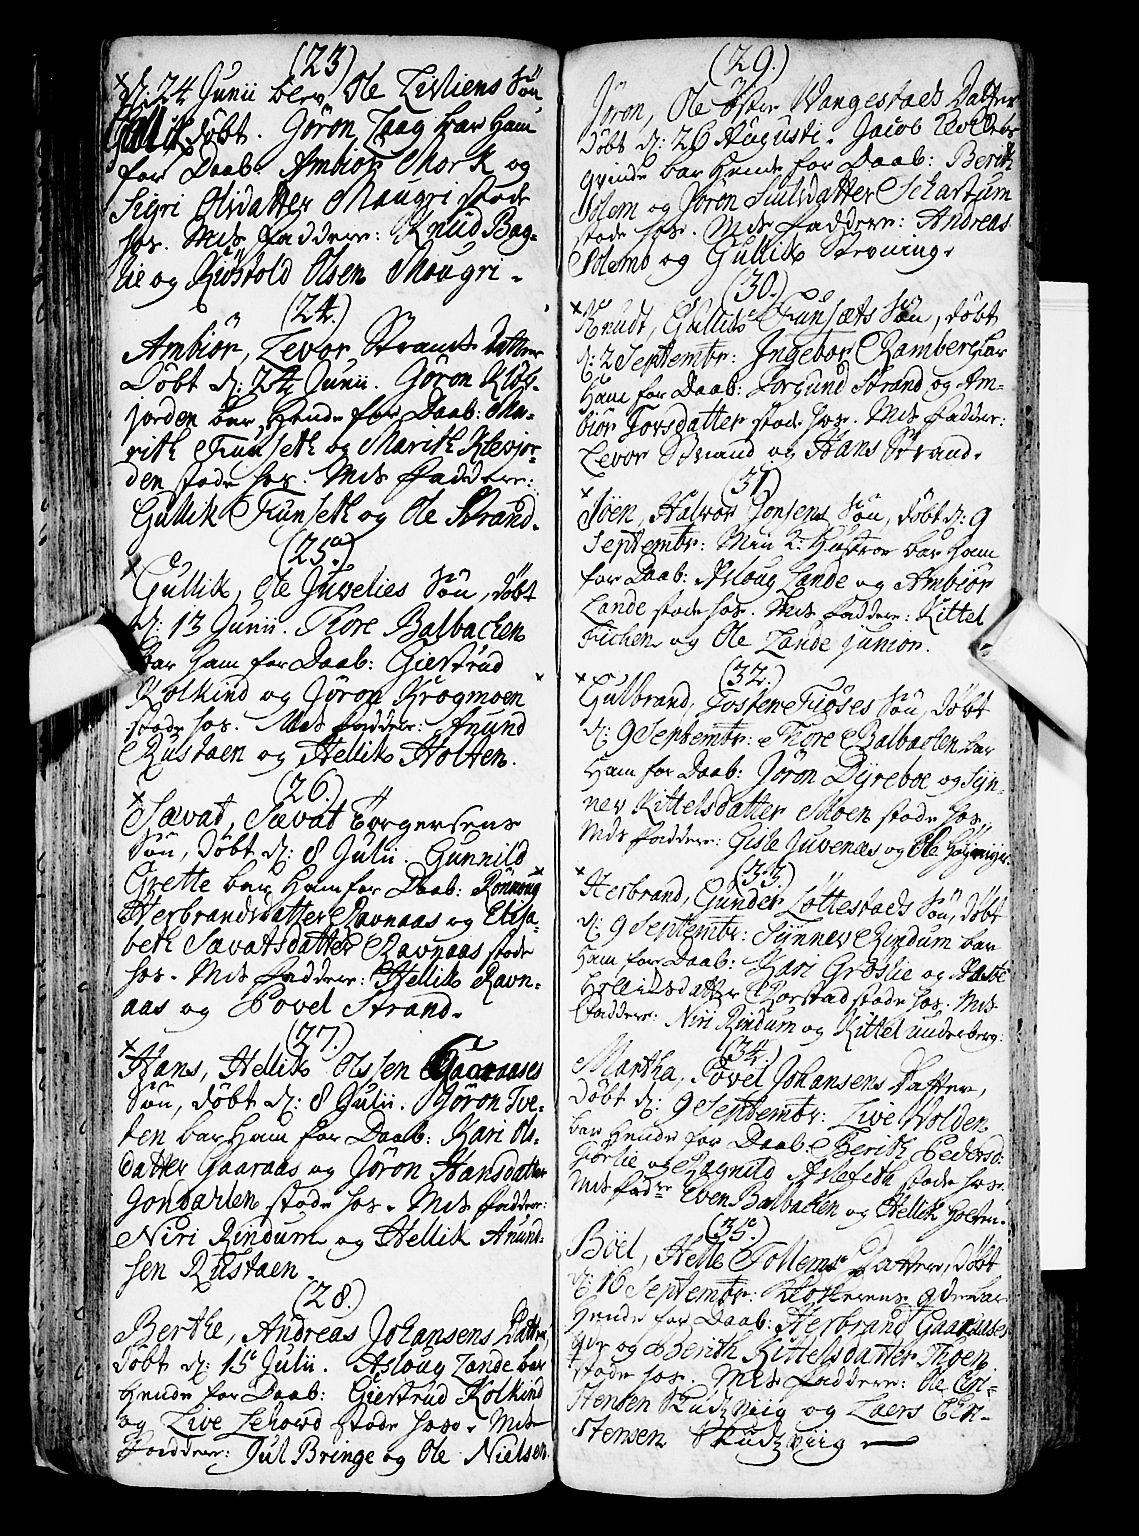 (23)
d: 24 Junii blev Ole Livliens Søn
Gullik døbt. Jöron Laag bar ham
for Daab. Ambiör Mork og
Sigri Olsdatter Mougri stode
hos. Mds Faddere: Knud Bag-
lie og Kiöstold Olsen Mougri.
(24.)
Ambiör, Levor Strands Datter
Døbt d: 24 Junii. Jöron Klöf-
jorden bar hende for Daab: Ma-
rith Funseth og Marith Klevjor-
den stode hos. Mds Faddere:
Gullik Funseth og Ole Strand.
(25.)
Gullik, Ole Juvelies Søn, døbt
d: 13 Junii. Thore Balbachen
bar ham for Daab: Giertrud
Kolkind og Jöron Krogmoen
stode hos. Mds Faddere: Anund
Rustaen og Hellik Holten.
(26.)
Sævat, Sævat Törgersens
Søn, døbt d: 8 Julii Gunnild
Grette bar ham for Daab: Rönnoug
Herbrandsdatter Ravnaas og Elisa-
beth Sævatsdatter Ravnaas stode
hos. Mds Faddere: Hellik Ravn-
aas og Povel Strand.
(27.)
Hans, Hellik Olssen Gaaraases
Søn, døbt d: 8 Julii. Jöron Tve-
ten bar ham for Daab: Kari Ols-
datter Gaaraas og Jöron Hansdatter
stode hos. Mds Faddere:
Niri Rindum og Hellik Anund-
sen Rustaen.
(28.)
Berthe, Andreas Johansens Datter,
døbt d: 15 Julii. Asloug Lande bar
hende for Daab: Giertrud Kolkind
og Live Lehovd stode hos. Mds
Faddere: Jul Bringe og Ole Nielsen.
(29.)
Jöron, Ole Wangestads Datter
døbt d: 26 Augusti. Jacob
qvinde bar hende for Daab: Berith
Solem og Jöron Juulsdatter Schartum
stode hos. Mds Faddere: Andreas
Solemb og Gullik
(30.)
Knudt, Gullik Funsæts Søn, døbt
d: 2 Septembr: Ingebor Ramberg bar
ham for Daab: Jorgund Strand og Am-
biör Tovsdatter stode hos. Mds Fadder:
Levor Strand og Hans Strand.
(31)
Joen, Halvor Jonsens Søn, døbt d: 9
Septembr: Min K: Hustroe bar ham
for Daab: Asloug Lande og Ambiör
Lande stode hos. Mds Faddere: Kittel
Fichen og Ole Lande junior.
(32.)
Gulbrand, Tosten Fiöses Søn, døbt
d: 9 Septembr: Thore Balbachen bar
ham for Daab: Jöron Dyreboe og Syn-
nev Kittelsdatter Moen stode hos.
Mds Faddere: Gisle Juvenæs og Ole Høymyr.
(33.)
Herbrand, Gunder Löttestads Søn, døbt
d: 9 Septembr: Synnev Rindum bar
ham for Daab: Kari Groslie og Aaste
Hellicsdatter stode hos. Mds
Faddere: Niri Rindum og Kittel underberg:
(34.)
Martha, Povel Johansens Datter,
døbt d: 9 Septembr: Live Wolden
bar hende for Daab: Berith Pedersd:
og Ragnild Aslefeth stode hos.
Mds Fadre Even Balbachen og Hellik Holten.
(35.)
Böel, Helle Tollems Datter, døbt
d: 16 Septembr: Klokerens qde bar
hende for Daab: Herbrand Gaaraases
qde og Berith Kittelsdatter Thoen
stode hos. Mds Faddere: Ole Cri-
stensen Skudsviig og Laers Cri-
stensen Skudsviig